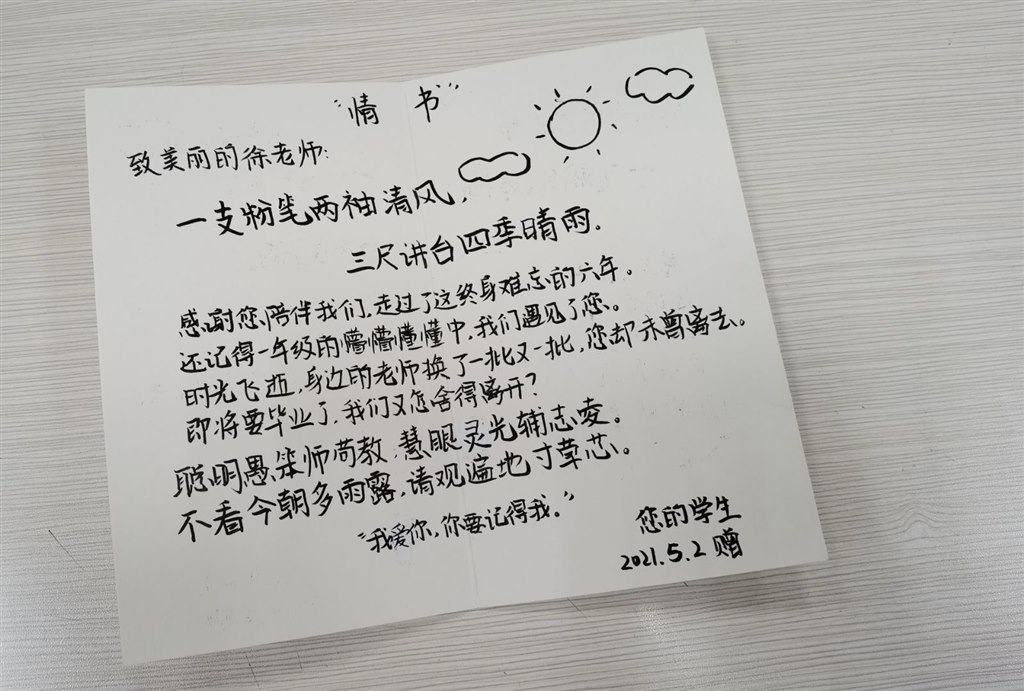 “情 书”
致美丽的徐老师:
一支粉笔两袖清风,
三尺讲台四季晴雨.
感谢您,陪伴我们,走过了这终身难忘的六年。
还记得一年级的懵懵懂懂中,我们遇见了您。
时光飞逝,身边的老师换了一批又一批,您却未曾离去。
即将要毕业了,我们又怎舍得离开?
聪明愚笨师苟教,慧眼灵光辅志凌。
不看今朝多雨露,请观遍地寸草芯。
“我爱你,你要记得我。”
您的学生
2021.5.2 赠